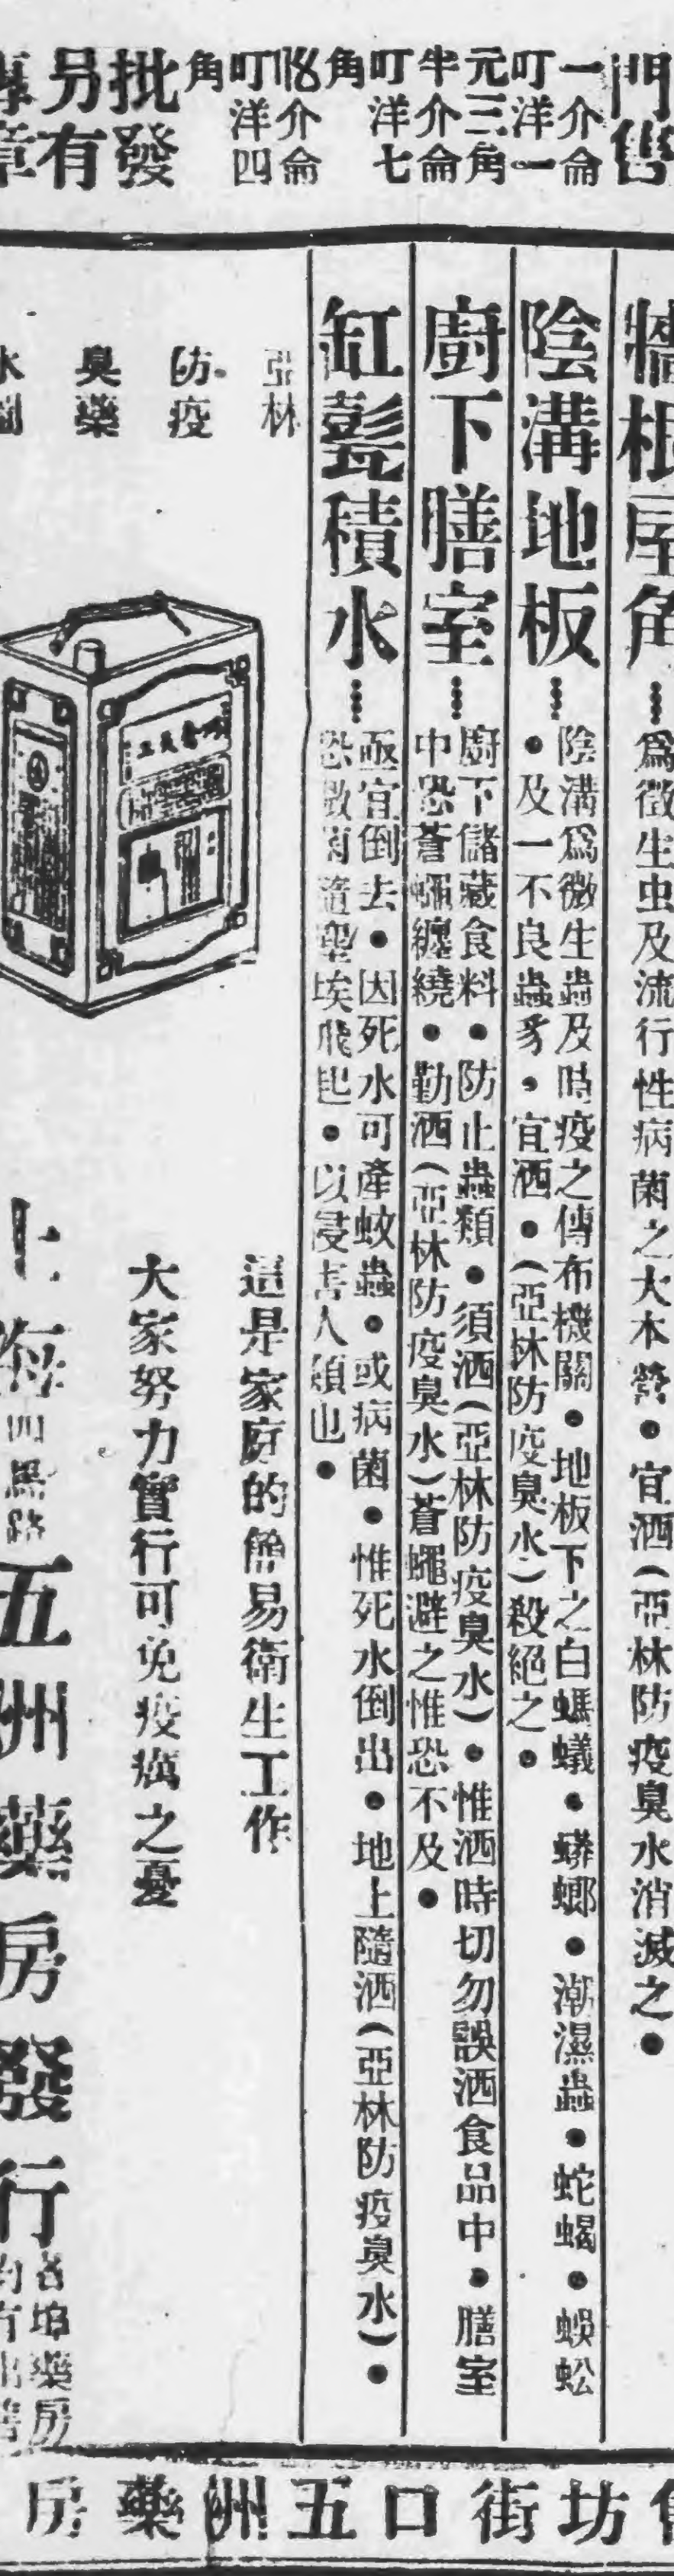 門售
一介侖
叮洋一
元三角
半介侖
叮洋七
角
介侖
叮洋四
角
批發
另有
章
牆根屋角
為微生虫及流行性病菌之大本營●宜洒(亞林防疫臭水消滅之●
陰溝地板
陰溝為微生蟲及時疫之傳布機關●地板下之白螞蟻●蟑螂●潮濕蟲●蛇蝎●蜈蚣
●及一不良蟲豸●宜洒●(亞林防疫臭水)殺絕之●
廚下膳室
廚下儲藏食料●防止蟲類●須洒(亞林防疫臭水)●惟洒時切勿誤洒食品中●膳室
中恐蒼蠅纏繞●勤洒(亞林防疫臭水)蒼蠅避之惟恐不及●
缸甏積水
亟宜倒去●因死水可產蚊蟲●或病菌●惟死水倒出●地上隨洒(亞林防疫臭水)●
恐微菌隨塵埃飛起●以侵害人類也●
亞林
防疫
臭藥
水
這是家庭的簡易衛生工作
大家努力實行可免疫癘之憂
上海四馬路五洲藥房發行
各埠藥房
均有出售
房藥洲五口街坊